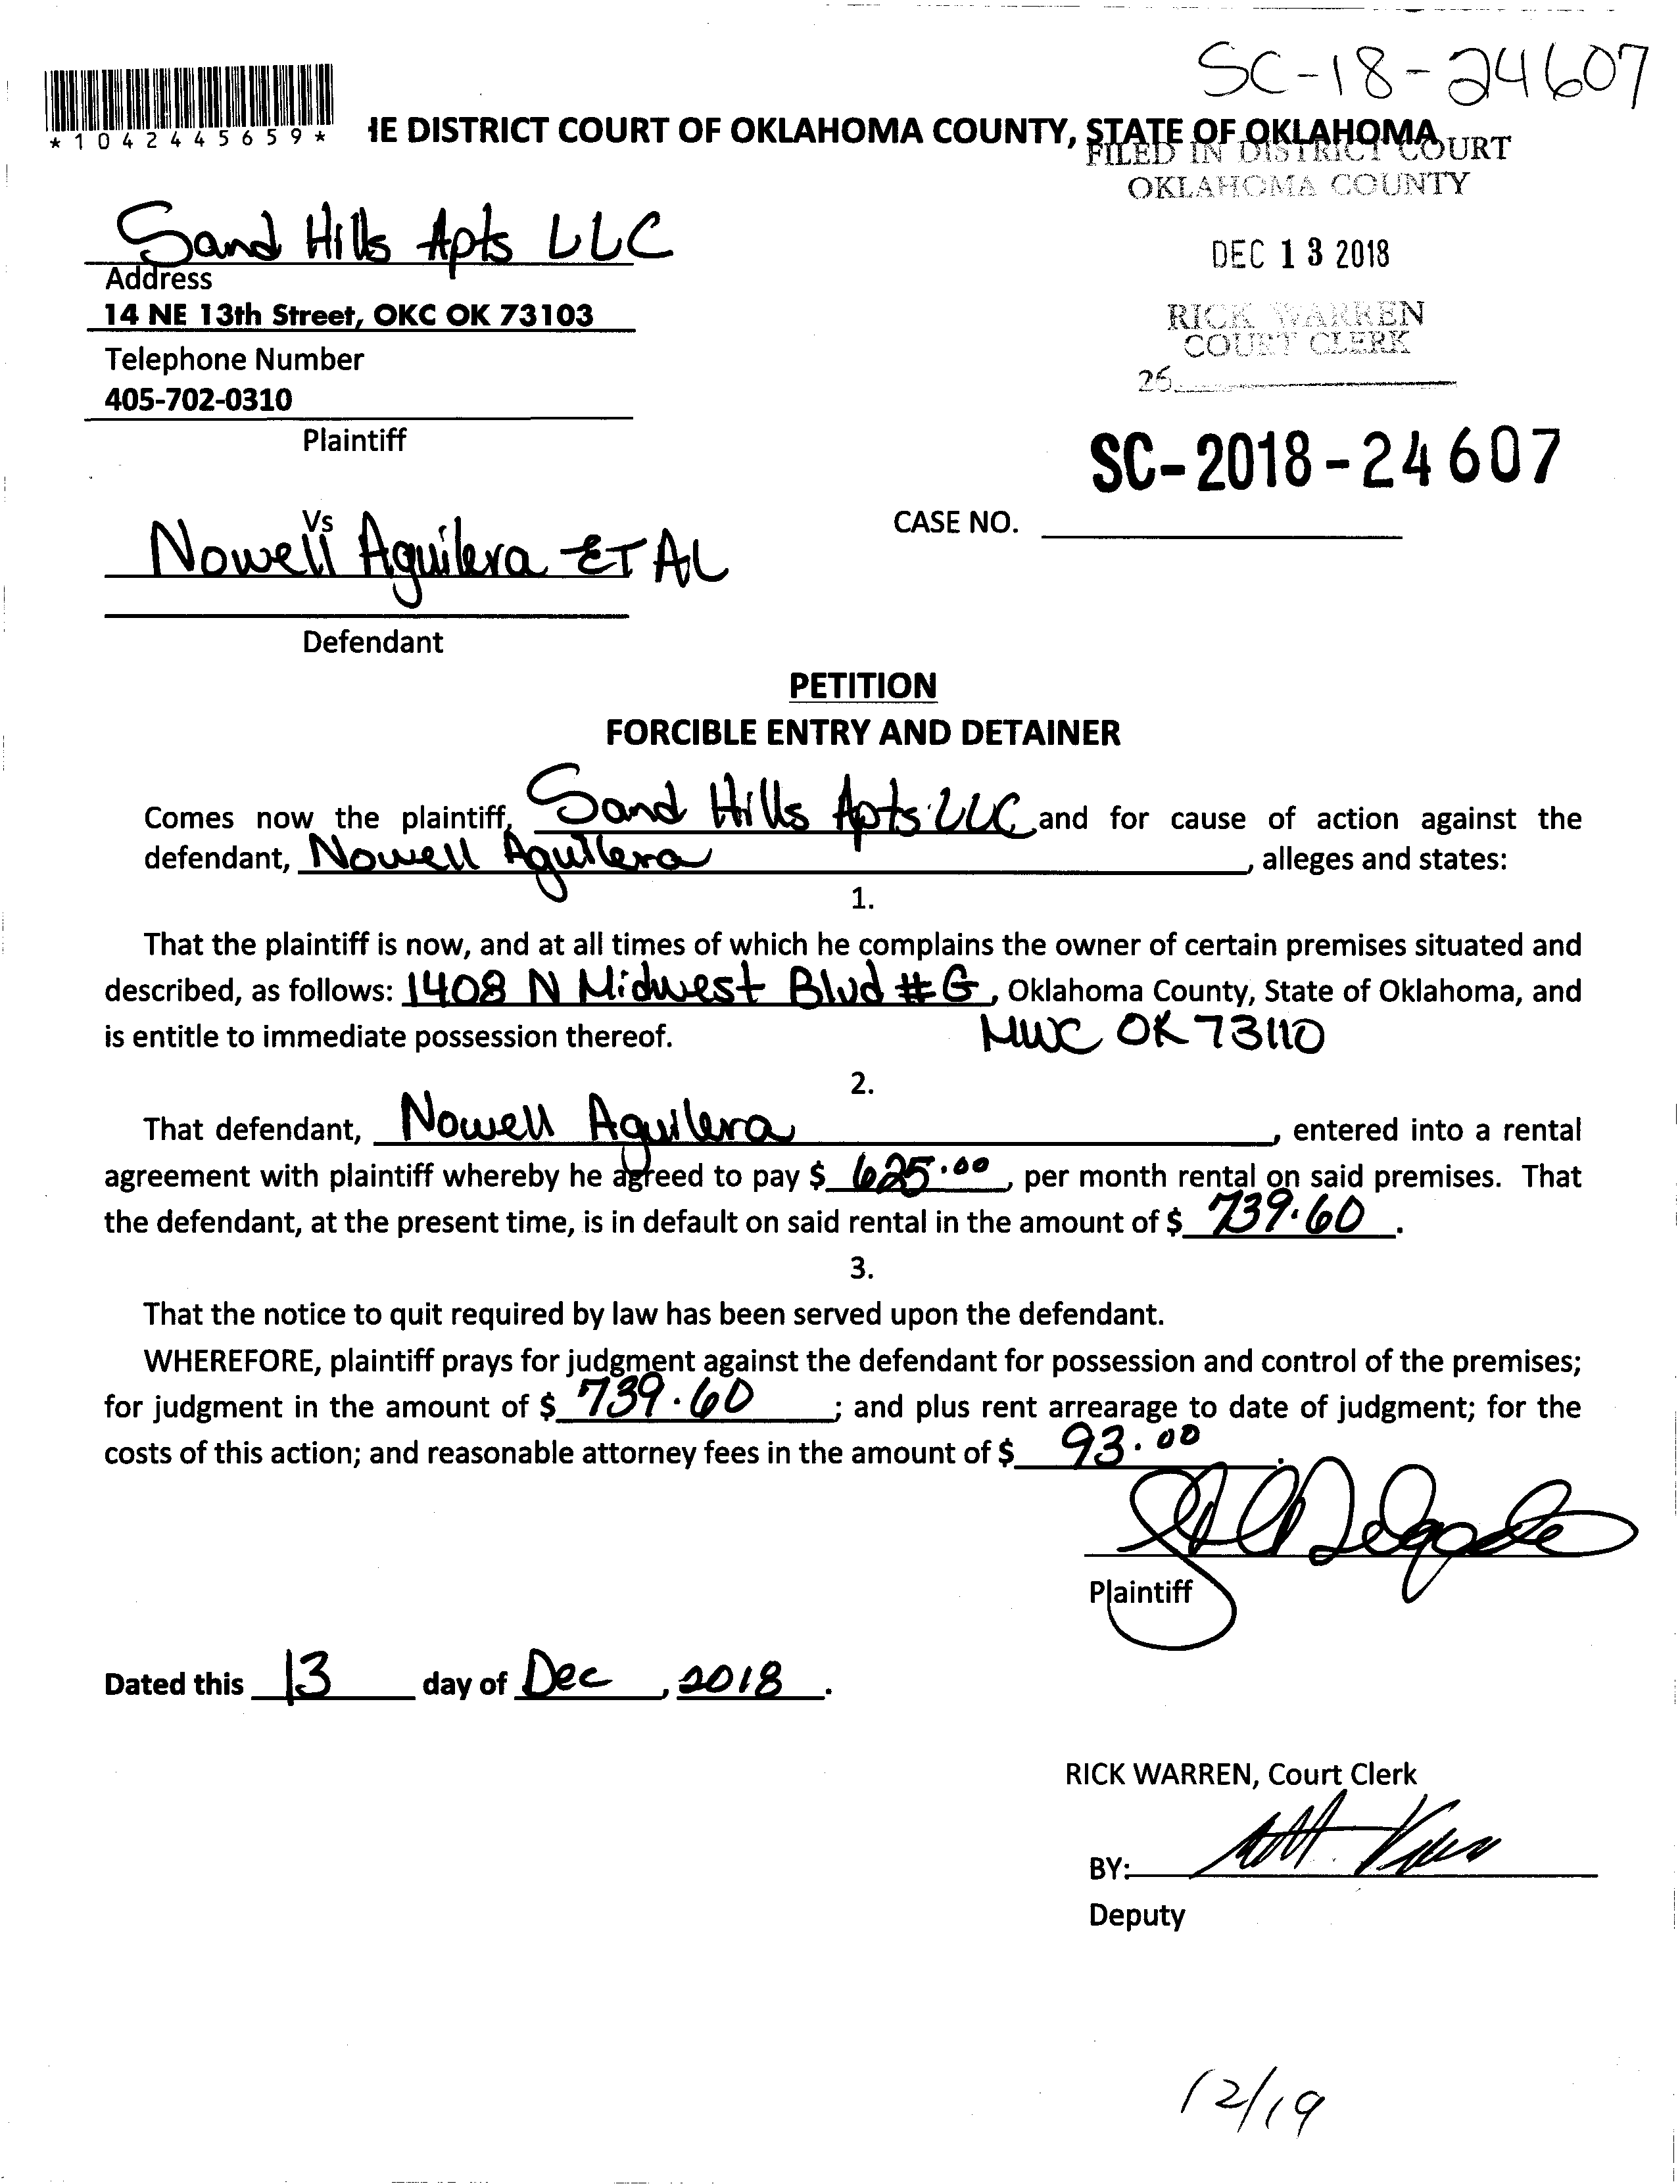 SC-18-24607
*1042445659*
IE DISTRICT COURT OF OKLAHOMA COUNTY, STATE OF OKLAHOMA
FILED IN DISTRICT COURT
OKLAHOMA COUNTY
Sand Hills Apts LLC
Address
14 NE 13th Street, OKC OK 73103
Telephone Number
405-702-0310
Plaintiff
DEC 13 2018
RICK WARREN
COURT CLERK
26
SC-2018-24607
CASE NO.
Vs
Nowell Aguilera ET AL
Defendant
PETITION
FORCIBLE ENTRY AND DETAINER
Comes now the plaintiff, Sand Hills Apts LLC and for cause of action against the
defendant, Nowell Aguilera, alleges and states:
1.
That the plaintiff is now, and at all times of which he complains the owner of certain premises situated and
described, as follows: 1408 N Midwest Blvd #G, Oklahoma County, State of Oklahoma, and
is entitle to immediate possession thereof. MWC OK 73110
2.
That defendant, Nowell Aguilera, entered into a rental
agreement with plaintiff whereby he agreed to pay $ 625.00, per month rental on said premises. That
the defendant, at the present time, is in default on said rental in the amount of $ 739.60.
3.
That the notice to quit required by law has been served upon the defendant.
WHEREFORE, plaintiff prays for judgment against the defendant for possession and control of the premises;
for judgment in the amount of $ 739.60; and plus rent arrearage to date of judgment; for the
costs of this action; and reasonable attorney fees in the amount of $ 93.00.
Delgado
Plaintiff
Dated this 13 day of Dec, 2018.
RICK WARREN, Court Clerk
BY:
Deputy
12/19